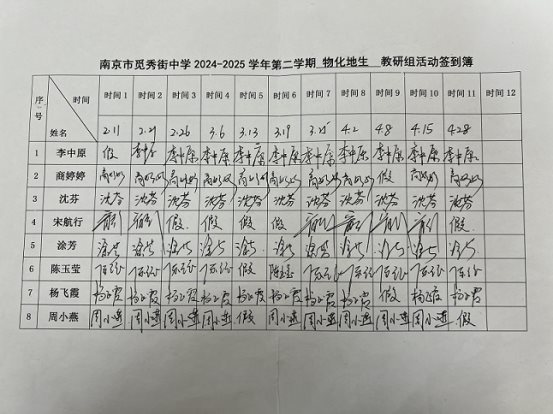 南京市觅秀街中学 2024-2025 学年第二学期 物化地生 教研组活动签到簿
序号 时间 姓名 时间 1 时间 2 时间 3 时间 4 时间 5 时间 6 时间 7 时间 8 时间 9 时间 10 时间 11 时间 12
2.11 2.21 2.26 3.6 3.13 3.19 3.25 4.2 4.8 4.15 4.28
1 李中原 假 李中原 李中原 李中原 李中原 李中原 李中原 李中原 李中原 李中原 李中原
2 商婷婷 商婷婷 商婷婷 商婷婷 商婷婷 商婷婷 商婷婷 商婷婷 商婷婷 假 商婷婷 商婷婷
3 沈芬 沈芬 沈芬 沈芬 沈芬 沈芬 沈芬 沈芬 沈芬 沈芬 沈芬 沈芬
4 宋航行 假 假 假 假 假
5 涂芳 涂芳 涂芳 涂芳 涂芳 涂芳 涂芳 涂芳 涂芳 涂芳 涂芳 涂芳
6 陈玉莹 假 陈玉莹
7 杨飞霞 杨飞霞 杨飞霞 杨飞霞 杨飞霞 杨飞霞 杨飞霞 杨飞霞 杨飞霞 假 杨飞霞 杨飞霞
8 周小燕 周小燕 周小燕 周小燕 周小燕 假 周小燕 周小燕 周小燕 周小燕 周小燕 假